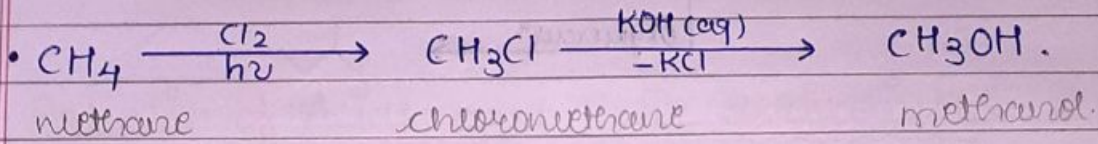 • CH4 —Cl2/hν→ CH3Cl —KOH (aq)/−KCl→ CH3OH.
methane chloromethane methanol.